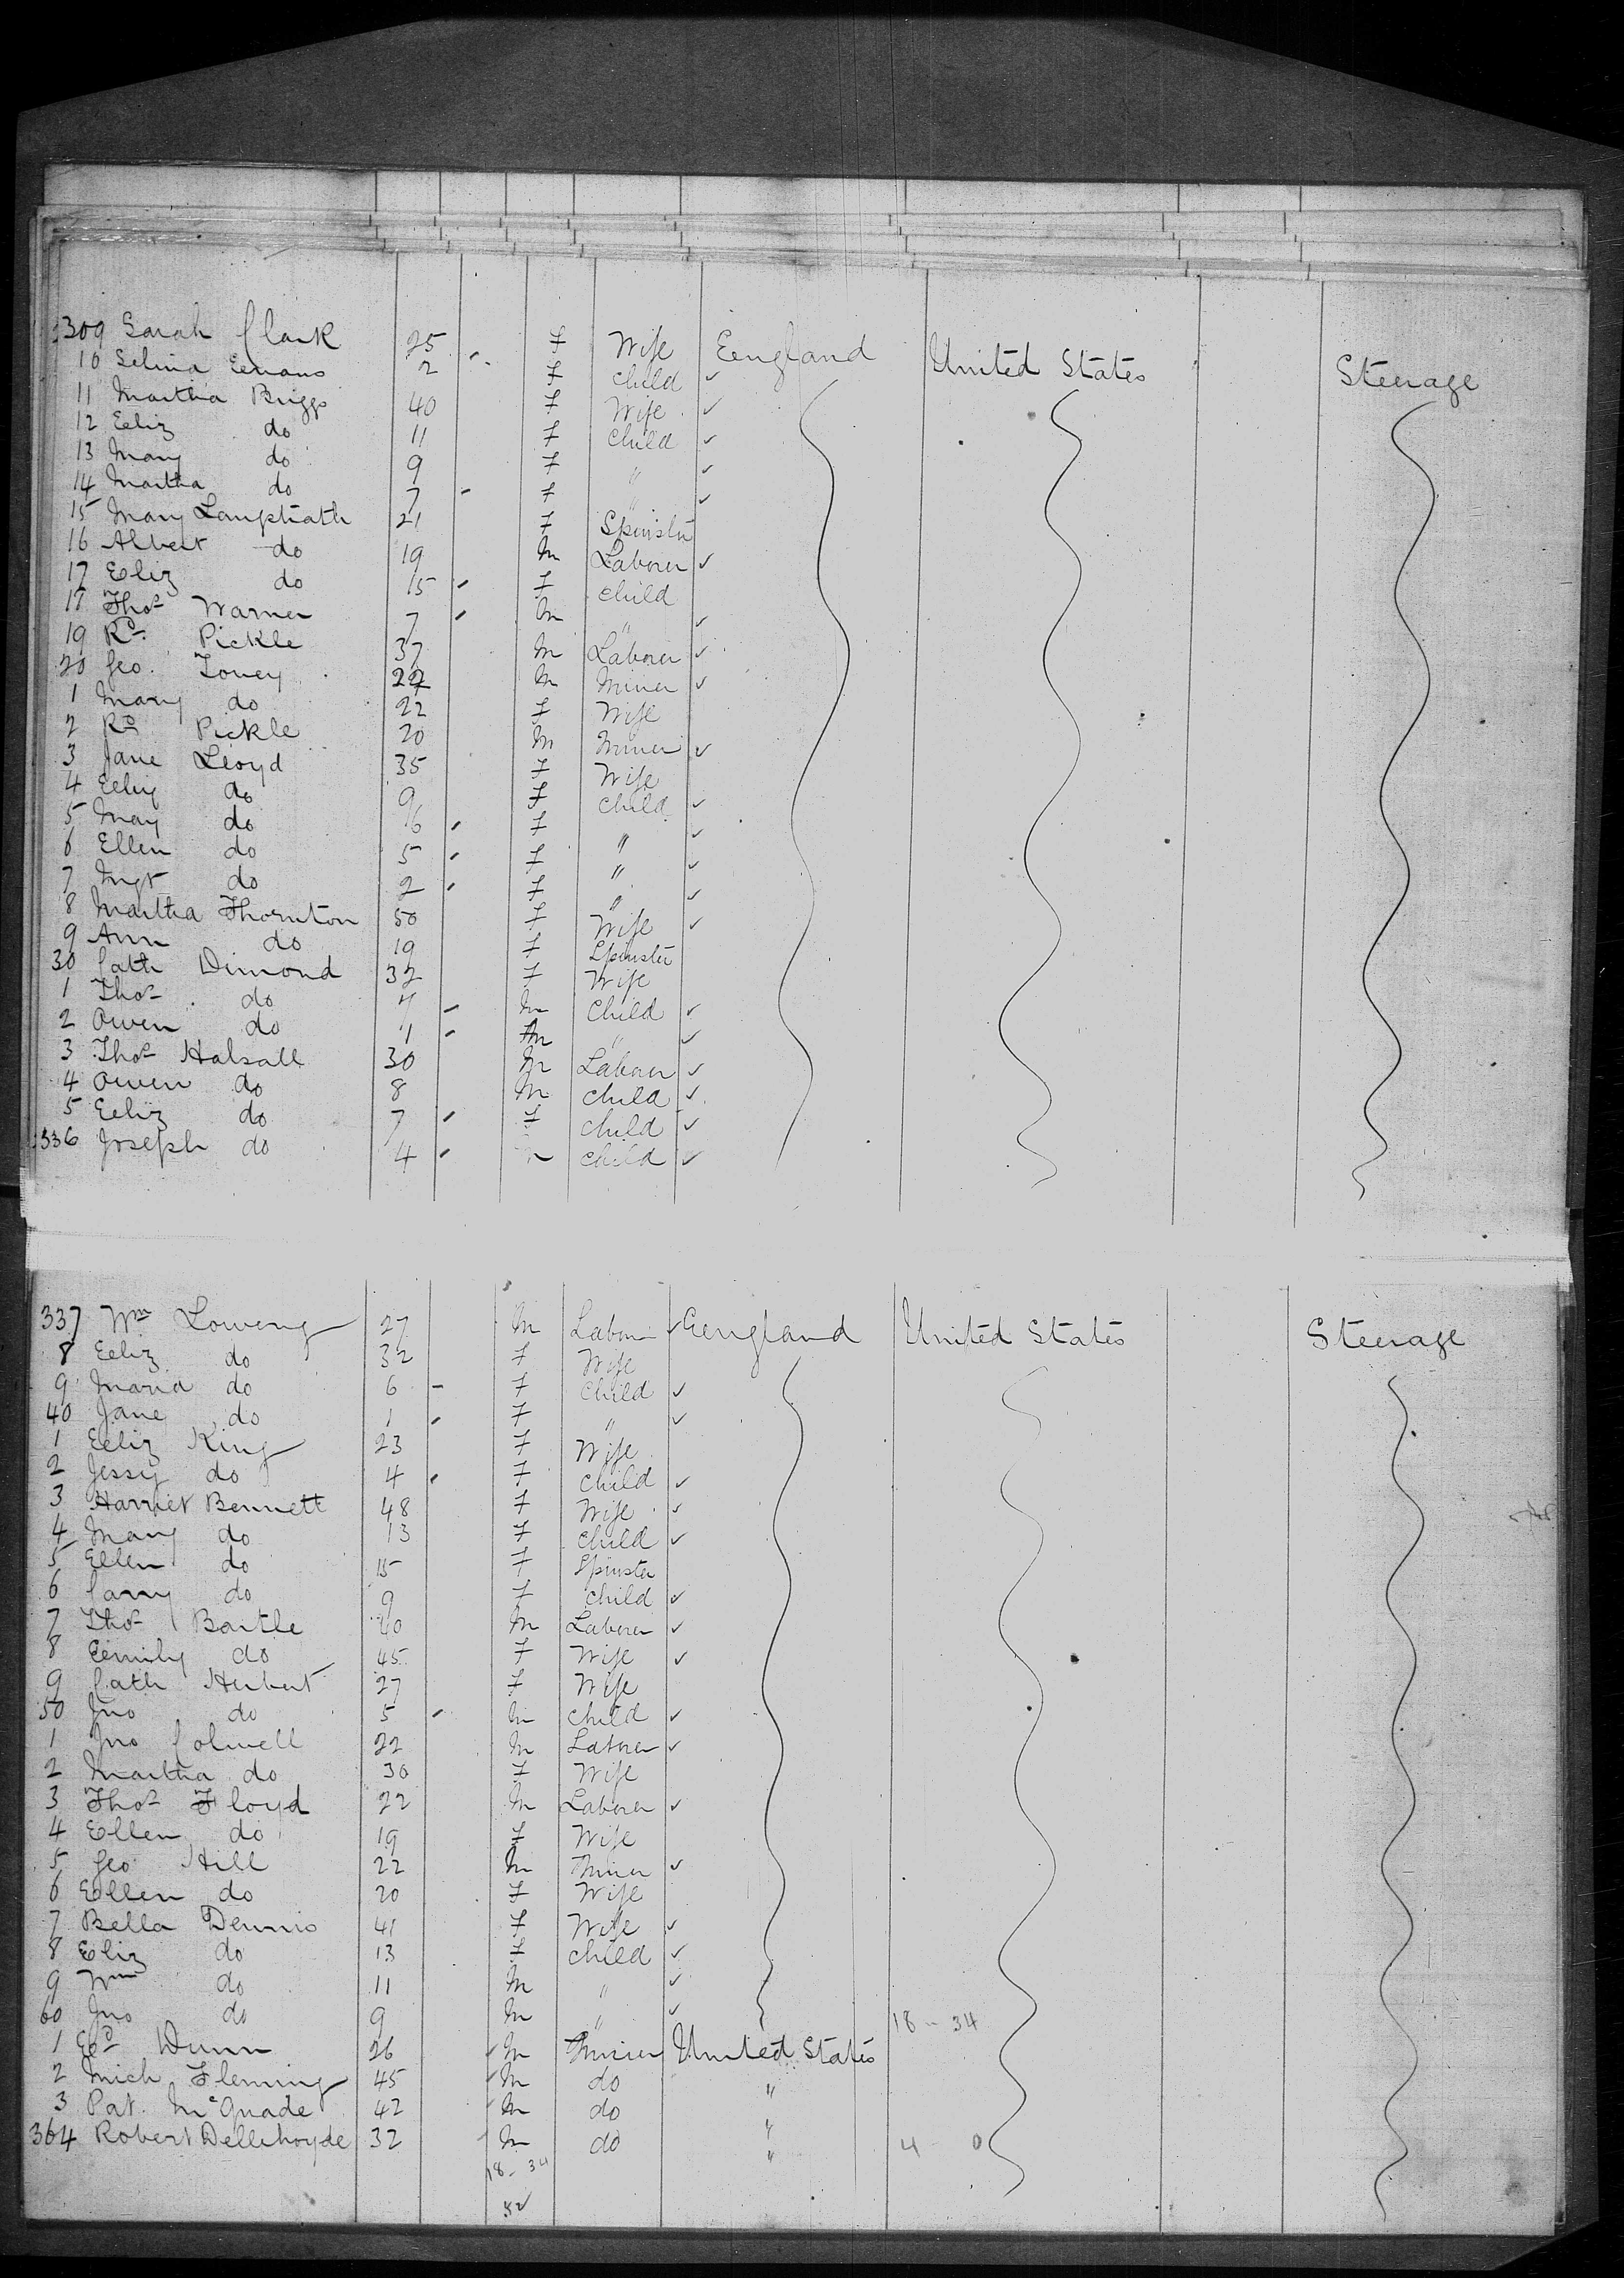 309 Sarah Clark 25 F Wife England United States Steerage
10 Selina Evans 2 F Child
11 Martha Briggs 40 F Wife
12 Eliz do 11 F Child
13 Mary do 9 F "
14 Martha do 7 F "
15 Mary 21 F Spinster
16 Albert do 19 M Laborer
17 Eliz do 15 F child
Thos Warner 7 M "
19 Rd Pickle 37 M Laborer
20 Geo. Tovey M Miner
1 Mary do 22 F Wife
2 Rd Pickle 20 M Miner
3 Jane Lloyd 35 F Wife
4 Eliz do 9 F Child
5 May do F "
6 Ellen do 5 F "
7 Mgt do 2 F "
8 Martha Thornton 50 F Wife
9 Ann do 19 F Spinster
30 Cath Dimond 32 F Wife
1 Thos do M Child
2 Owen do 1 M "
3 Thos Halsall 30 M Laborer
4 Owen do 8 M Child
5 Eliz do 7 F child
336 Joseph do 4 M child
337 Wm 27 M Labor England United States Steerage
8 Eliz do 32 F Wife
9 Maria do 6 F Child
40 Jane do 1 F "
1 Eliz King 23 F Wife
2 Jessy do 4 F child
3 Harriet Bennett 48 F Wife
4 Mary do 13 F child
5 Ellen do 15 F Spinster
6 Carry do 9 F child
7 Thos Bartle M Laborer
8 Emily do 45 F Wife
9 Cath Herbert 27 F Wife
50 Jno do 5 M Child
1 Jno Colwell 22 M Laborer
2 Martha do 30 F Wife
3 Thos Floyd 22 M Laborer
4 Ellen do 19 F Wife
5 Geo Hill 22 M Miner
6 Ellen do 20 F Wife
7 Bella Dennis 41 F Wife
8 Eliz do 13 F Child
9 Wm do 11 M "
60 Jno do 9 M " 18 - 34
1 Ed Dunn 26 M Miner United States
2 Mich Fleming 45 M do "
3 Pat. McQuade 42 M do "
364 Robert Dellihoyde 32 M do " 4 - 0
18 - 34
52